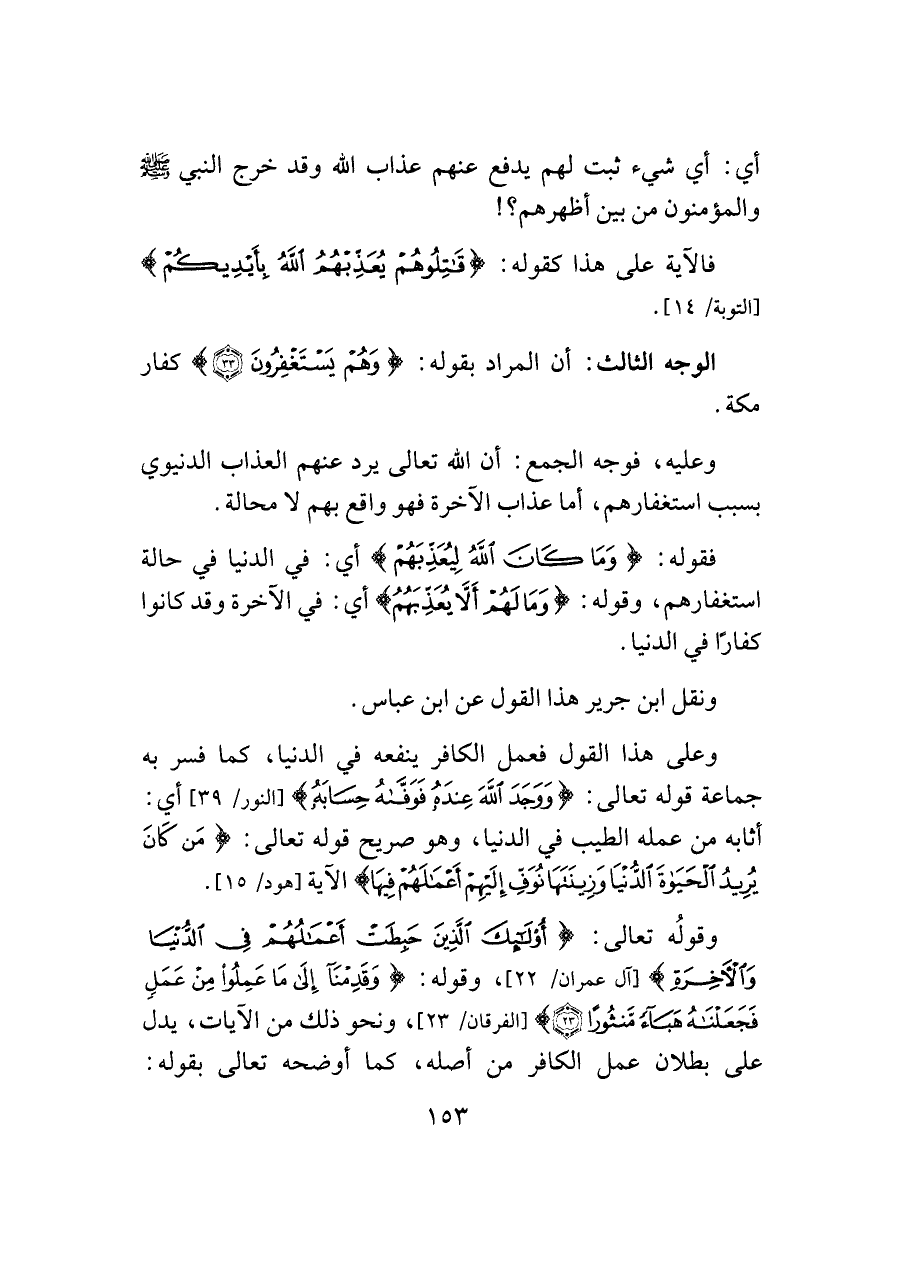 أي: أي شيء ثبت لهم يدفع عنهم عذاب الله وقد خرج النبي ﷺ
والمؤمنون من بين أظهرهم؟!
فالآية على هذا كقوله: ﴿قَٰتِلُوهُمۡ يُعَذِّبۡهُمُ ٱللَّهُ بِأَيۡدِيكُمۡ﴾
[التوبة/ ١٤].
الوجه الثالث: أن المراد بقوله: ﴿وَهُمۡ يَسۡتَغۡفِرُونَ ٣٣﴾ كفار
مكة.
وعليه، فوجه الجمع: أن الله تعالى يرد عنهم العذاب الدنيوي
بسبب استغفارهم، أما عذاب الآخرة فهو واقع بهم لا محالة.
فقوله: ﴿وَمَا كَانَ ٱللَّهُ لِيُعَذِّبَهُمۡ﴾ أي: في الدنيا في حالة
استغفارهم، وقوله: ﴿وَمَا لَهُمۡ أَلَّا يُعَذِّبَهُمُ﴾ أي: في الآخرة وقد كانوا
كفارًا في الدنيا.
ونقل ابن جرير هذا القول عن ابن عباس.
وعلى هذا القول فعمل الكافر ينفعه في الدنيا، كما فسر به
جماعة قوله تعالى: ﴿وَوَجَدَ ٱللَّهَ عِندَهُۥ فَوَفَّىٰهُ حِسَابَهُۥ﴾ [النور/ ٣٩] أي:
أثابه من عمله الطيب في الدنيا، وهو صريح قوله تعالى: ﴿مَن كَانَ
يُرِيدُ ٱلۡحَيَوٰةَ ٱلدُّنۡيَا وَزِينَتَهَا نُوَفِّ إِلَيۡهِمۡ أَعۡمَٰلَهُمۡ فِيهَا﴾ الآية [هود/ ١٥].
وقولُه تعالى: ﴿أُوْلَٰٓئِكَ ٱلَّذِينَ حَبِطَتۡ أَعۡمَٰلُهُمۡ فِي ٱلدُّنۡيَا
وَٱلۡأٓخِرَةِ﴾ [آل عمران/ ٢٢]، وقوله: ﴿وَقَدِمۡنَآ إِلَىٰ مَا عَمِلُواْ مِنۡ عَمَلٖ
فَجَعَلۡنَٰهُ هَبَآءٗ مَّنثُورًا ٢٣﴾ [الفرقان/ ٢٣]، ونحو ذلك من الآيات، يدل
على بطلان عمل الكافر من أصله، كما أوضحه تعالى بقوله:
١٥٣